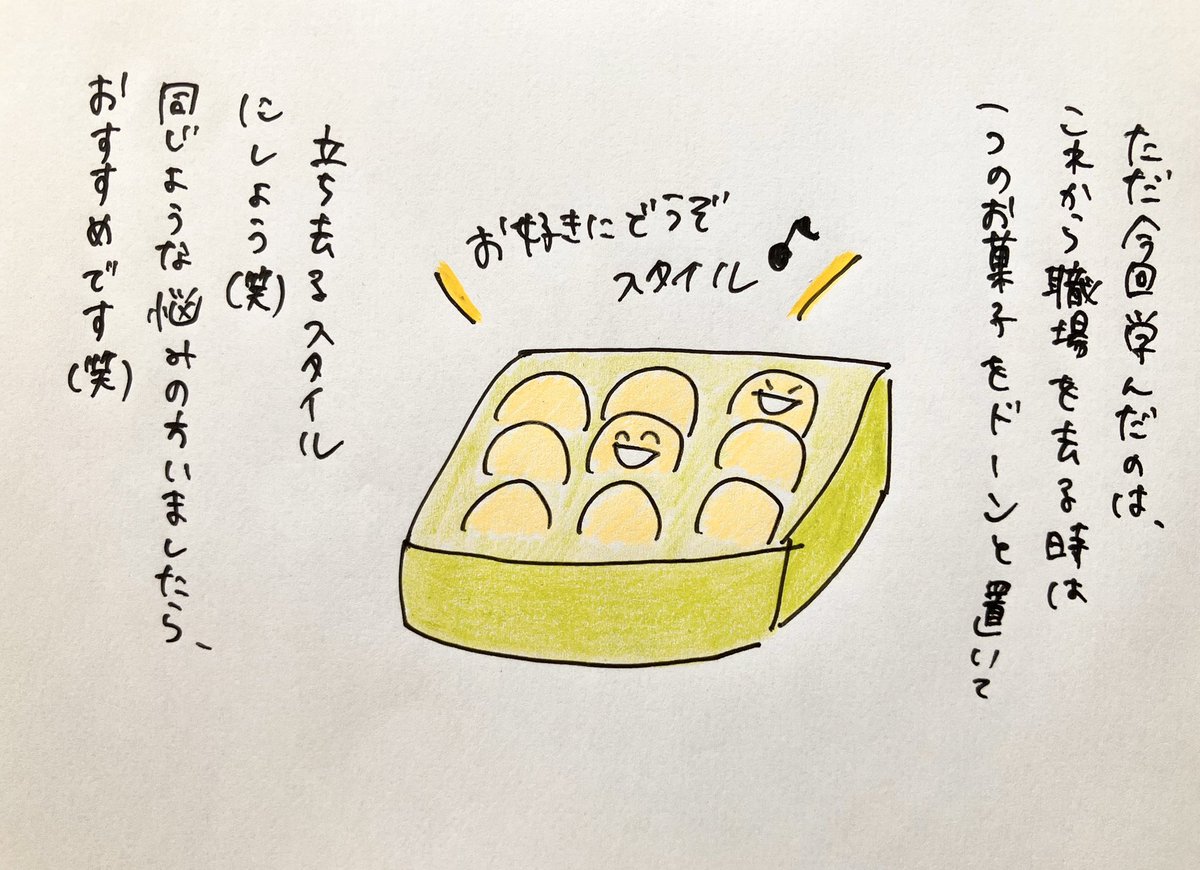 ただ今回学んだのは、
これから職場を去る時は
一つのお菓子をドーンと置いて
お好きにどうぞ
スタイル♪
立ち去るスタイル
にしよう(笑)
同じような悩みの方いましたら、
おすすめです(笑)